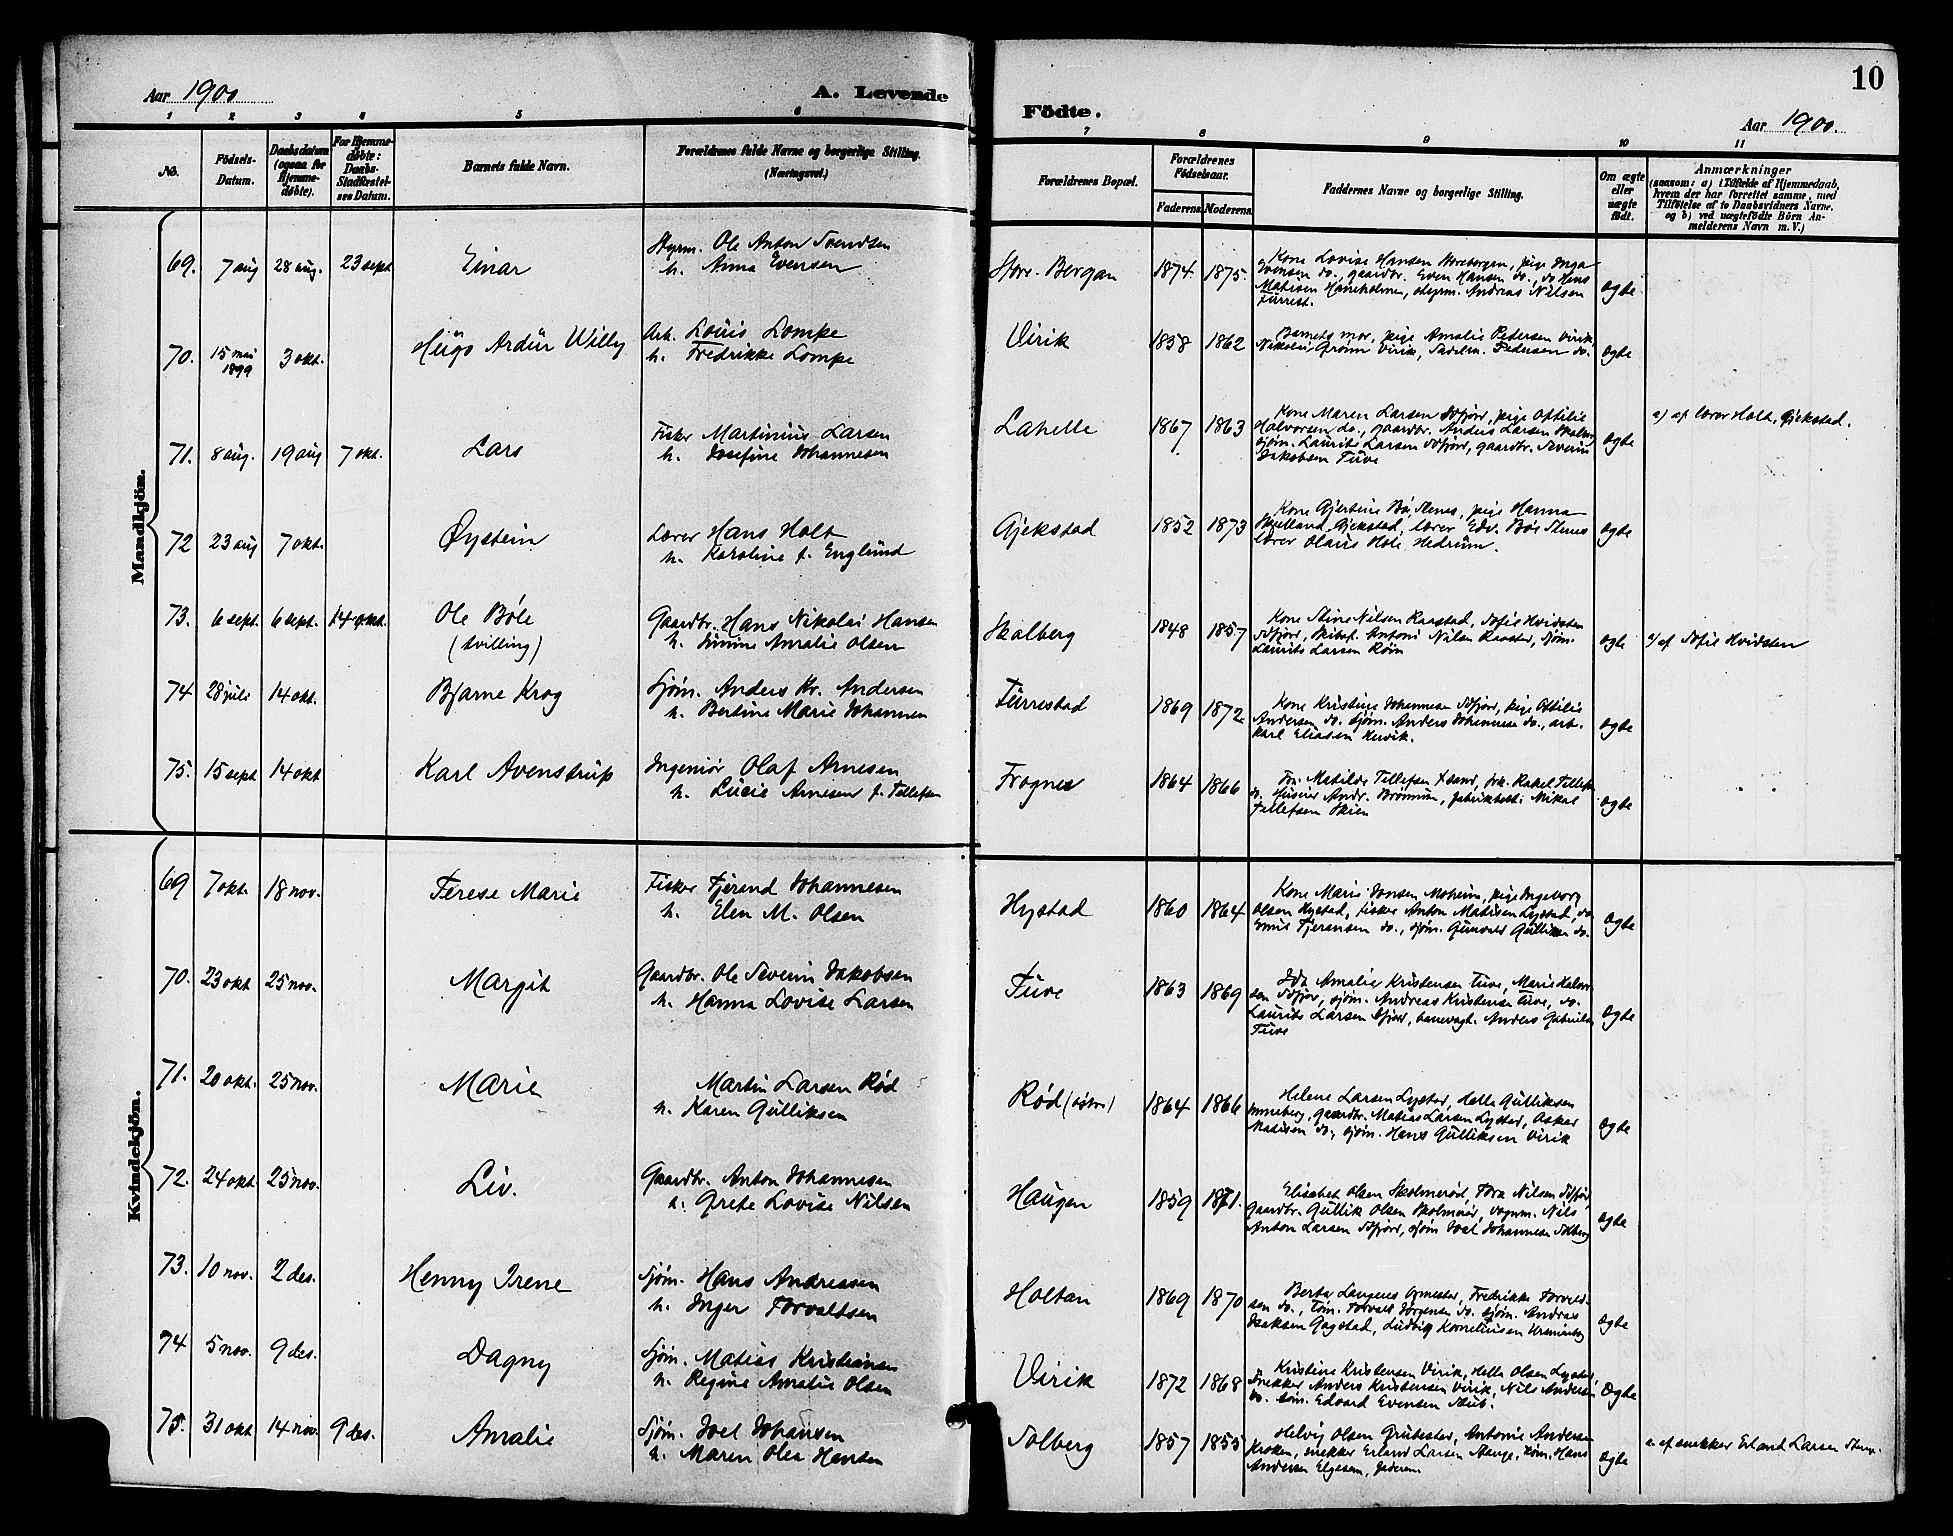 10
Aar 1900
A. Levende
Födte.
Aar 1900.
1 2 3 4 5 6 7 8 9 10 11
No.
Födsels-Datum.
Daabsdatum (ogsaa for Hjemme-döbte).
For Hjemme-döbte: Daabs-Stadfæstel-ses Datum.
Barnets fulde Navn.
Forældrenes fulde Navne og borgerlige Stilling.
(Næringsvei.)
Forældrenes Bopæl.
Forældrenes Födselsaar.
Faderens. Moderens.
Faddernes Navne og borgerlige Stilling.
Om ægte eller uægte födt.
Anmærkninger
(saasom: a) i Tilfælde af Hjemmedaab,
hvem der har forrettet samme, med
Tilföielse af to Daabsvidners Navne.
og b) ved uægtefödte Börn An-
melderens Navn m. V.)
Mandkjön.
69. 7 aug 28 aug. 23 sept Einar
Styrm. Ole Anton Svendsen
h. Anna Evensen
Store-Bergan 1874. 1875.
Kone Lovise Hansen Storebergan, pige Inga
Evensen do., gaardbr. Even Hansen do., do Hans
Matisen Haneholmen, styrm. Andreas Nilsen
Furrest.
ægte
70. 15 mai 1899 3 okt. Hugo Ardur Willy
Arb. Louis Lompe
h. Fredrikke Lompe
Virik 1858 1862
Barnets mor, pige Amalie Pedersen Virik,
Nikolai Grønn Virik, Pedersen do.
ægte
71. 8 aug. 19 aug 7 okt. Lars
Fisker Martinius Larsen
h. Josefine Johannesen
Lahelle 1867 1863
Kone Maren Larsen Sdfjør, pige Ottilie
Halvorsen do., gaardbr. Anders Larsen Skalberg
sjøm. Laurits Larsen Sdfjør, gaardbr. Severin
Jakobsen Tuve
ægte
a) af lærer Holt, Gjekstad.
72 23 aug 7 okt. Øystein
Lærer Hans Holt
h. Karoline f. Englund
Gjekstad 1852 1873
Kone Gjertine Bø, Stenes, pige Hanna
Gjekstad, lærer Edv. Bøe Stenes
lærer Olaus Holt, Hedrum.
ægte
73. 6 sept. 6 sept. 14 okt. Ole Bøle
(tvilling)
Gaardbr. Hans Nikolai Hansen
h. Simine Amalie Olsen
Skalberg 1848 1857
Kone Stine Nilsen Raastad, Sofie Hvidsten
Sdfjør, Skibsf. Antoni Nilsen Raastad, sjøm.
Laurits Larsen Røin
ægte
a) af Sofie Hvidsten
74 28 juli 14 okt. Bjarne Krog
Sjøm. Anders Kr. Andersen
h. Bertine Marie Johannesen
Furrestad 1869 1872
Kone Kristine Johannesen Sdfjør, pige Ottilie
Andersen do. sjøm. Anders Johannesen do., arb.
Karl Eliasen Huvik.
ægte
75. 15 sept 14 okt Karl Avenstrup
Ingeniør Olaf Arnesen
h. Lucie Arnesen f. Tellefsen
Frognes 1864 1866
Fru Matilde Tellefsen Xsand, frk. Rakel Tellefs
do. Huseier Andr. Brønnum, fabrikbest. Mikal
Tellefsen Skien
ægte
Kvindekjön.
69 7 okt. 18 nov. Terese Marie
Fisker Tjerand Johannesen
h. Elen M. Olsen
Hystad 1860 1864
Kone Marie Jonsen Moheim, pige Ingeborg
Olsen Hystad, fisker Anton Matisen Lystad, do
Emil Tjeransen do., sjøm. Gunvald Gulliksen do.
ægte
70. 23 okt 25 nov. Margit
Gaardbr. Ole Severin Jakobsen
h. Hanna Lovise Larsen
Tuve 1863 1869
Ida Amalie Kristensen Tuve, Marie Halvor-
sen Sdfjør, sjøm. Andreas Kristensen Tuve, do.
Laurits Larsen Sdfjør, banevagt. Anders Gabrielsen
Tuve
ægte
71. 20 okt. 25 nov. Marie
Martin Larsen Rød
h. Karen Gulliksen
Rød (østre) 1864 1866
Helene Larsen Lystad, Helle Gulliksen
Unneberg, gaardbr. Matias Larsen Lystad, Asker
Matisen do, sjøm. Hans Gulliksen Virik
ægte
72. 24 okt 25 nov. Liv.
Gaardbr. Anton Johannesen
h. Grete Lovise Nilsen
Haugen 1859 1871.
Elisabet Olsen Skolmerød, Tora Nilsen Sdfjør,
gaardbr. Gullik Olsen Skolmerød, vognm. Nils
Anton Larsen Sdfjør, sjøm Joel Johannesen Solberg
ægte
73. 10 nov. 2 des. Henny Irene
Sjøm. Hans Andreasen
h. Inger Torvaldsen
Holtan 1869 1870
Berta Laugenes Ormestad, Fredrikke Torvald-
sen do., tøm. Torvald Jørgensen do. sjøm. Andreas
Isaksen Gogstad, Ludvig Kornelinsen Unneberg
ægte
74 5 nov. 9 des. Dagny
Sjøm. Matias Kristiansen
h. Regine Amalie Olsen
Virik 1872 1868
Kristine Kristensen Virik, Helle Olsen Lystad,
snekker Anders Kristensen Virik, Nils Andersen
do. tøm. Edvard Evensen Stub.
Ægte
75. 31 okt 14 nov. 9 des. Amalie
Sjøm. Joel Johansen
h. Maren Olea Hansen
Solberg 1857 1855
Helvig Olsen Grubestad, Antonie Andersen
Kroken, snekker Erland Larsen Stange, tøm. Hans
Andersen Elgesem,
ægte
a. af snekker Erland Larsen Stange.